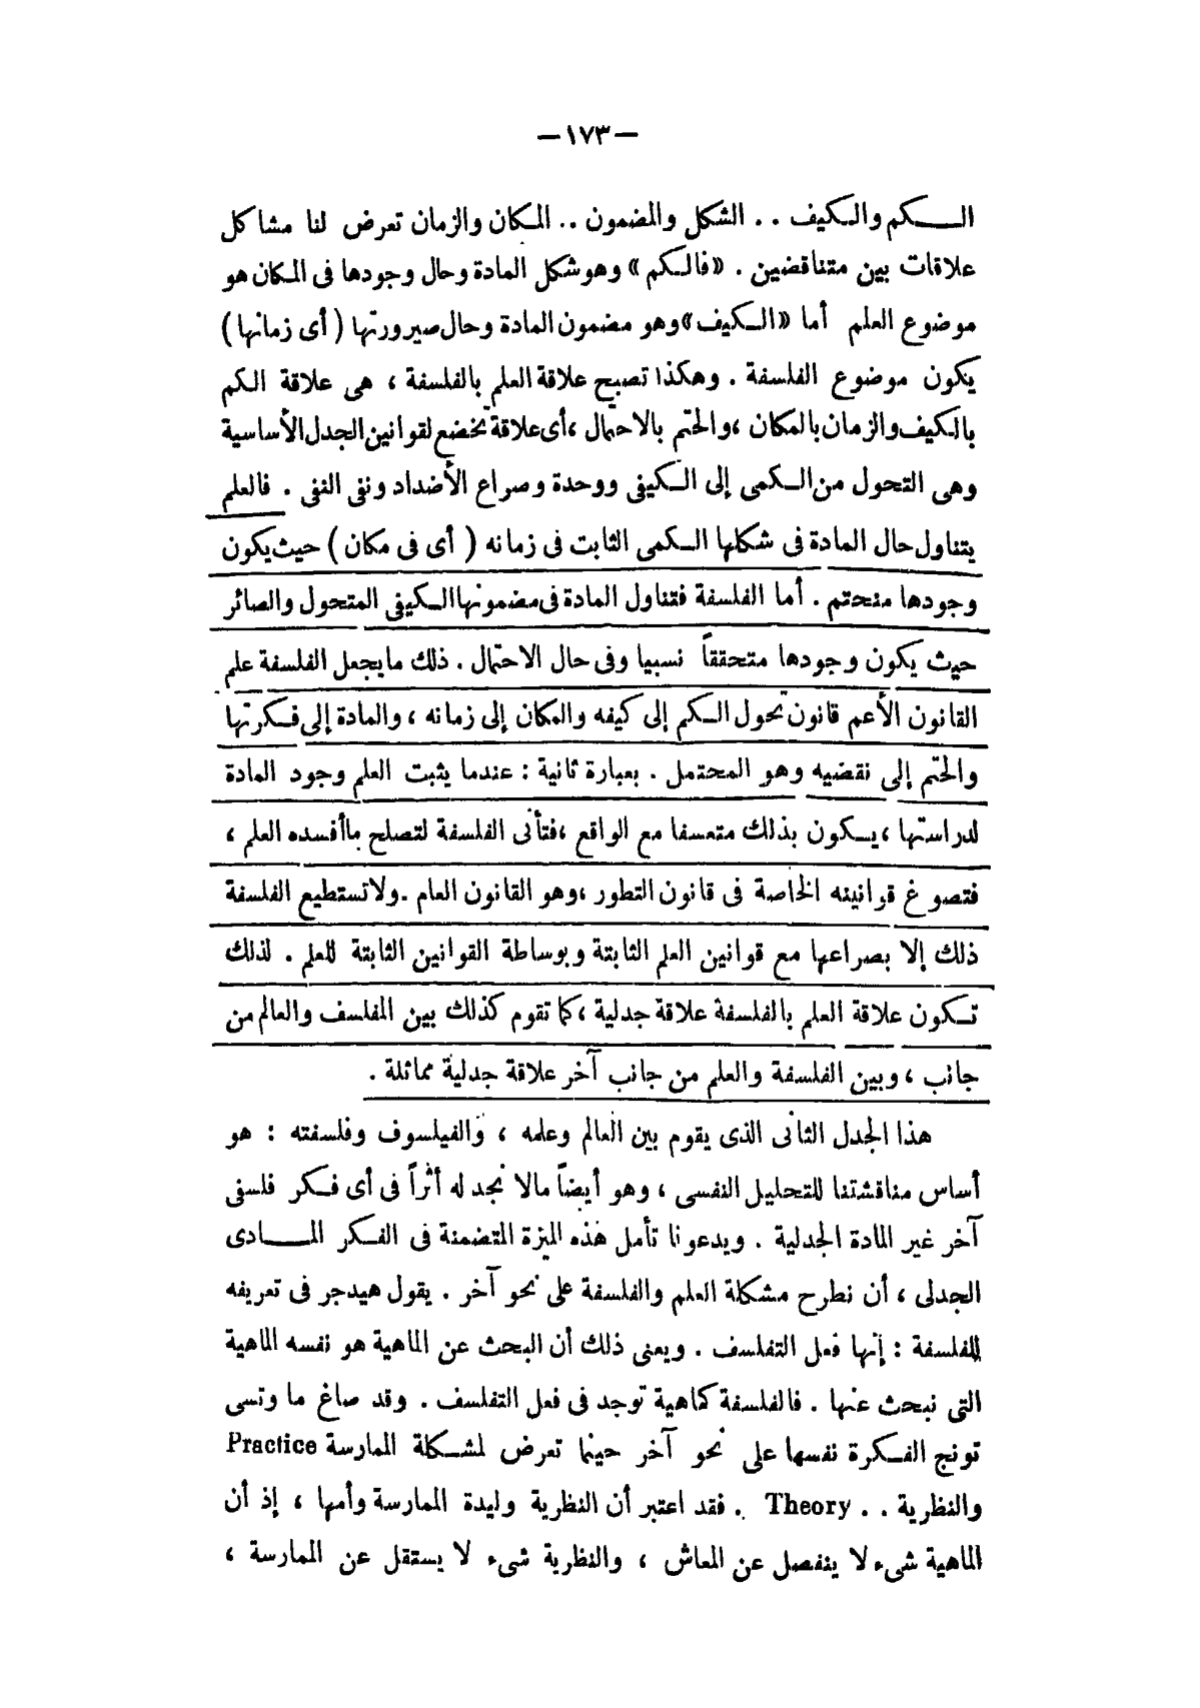 —١٧٣—
الـكم والـكيف .. الشكل والمضمون .. المكان والزمان تعرض لنا مشاكل
علاقات بين متناقضين . «فالـكم» وهو شكل المادة وحال وجودها فى المكان هو
موضوع العلم أما «الـكيف» وهو مضمون المادة وحال صيرورتها ( أى زمانها )
يكون موضوع الفلسفة . وهكذا تصبح علاقة العلم بالفلسفة ، هى علاقة الكم
بالكيف والزمان بالمكان ، والحتم بالاحتمال ، أى علاقة تخضع لقوانين الجدل الأساسية
وهى التحول من الـكمى إلى الـكيفى ووحدة وصراع الأضداد ونفى النفى . فالعلم
يتناول حال المادة فى شكلها الـكمى الثابت فى زمانه ( أى فى مكان ) حيث يكون
وجودها منحتم . أما الفلسفة فتناول المادة فى مضمونها الـكيفى المتحول والصائر
حيث يكون وجودها متحققاً نسبيا وفى حال الاحتمال . ذلك ما يجعل الفلسفة علم
القانون الأعم قانون تحول الـكم إلى كيفه والمكان إلى زمانه ، والمادة إلى فـكرتها
والحتم إلى نقضيه وهو المحتمل . بعبارة ثانية : عندما يثبت العلم وجود المادة
لدراستها ، يـكون بذلك متعسفا مع الواقع ، فتأتى الفلسفة لتصلح ما أفسده العلم ،
فتصوغ قوانينه الخاصة فى قانون التطور ، وهو القانون العام . ولا تستطيع الفلسفة
ذلك إلا بصراعها مع قوانين العلم الثابتة وبوساطة القوانين الثابتة للعلم . لذلك
تـكون علاقة العلم بالفلسفة علاقة جدلية ، كما تقوم كذلك بين المفلسف والعالم من
جانب ، وبين الفلسفة والعلم من جانب آخر علاقة جدلية مماثلة .
هذا الجدل الثانى الذى يقوم بين العالم وعلمه ، والفيلسوف وفلسفته : هو
أساس مناقشتنا للتحليل النفسى ، وهو أيضاً مالا نجد له أثراً فى أى فـكر فلسفى
آخر غير المادة الجدلية . ويدعونا تأمل هذه الميزة المتضمنة فى الفـكر المـادى
الجدلى ، أن نطرح مشكلة العلم والفلسفة على نحو آخر . يقول هيدجر فى تعريفه
للفلسفة : إنها فعل التفلسف . ويعنى ذلك أن البحث عن الماهية هو نفسه الماهية
التى نبحث عنها . فالفلسفة كماهية توجد فى فعل التفلسف . وقد صاغ ما وتسى
تونج الفـكرة نفسها على نحو آخر حينما تعرض لمشـكلة الممارسة Practice
والنظرية . . Theory . فقد اعتبر أن النظرية وليدة الممارسة وأمها ، إذ أن
الماهية شىء لا ينفصل عن المعاش ، والنظرية شىء لا يستقل عن الممارسة ،